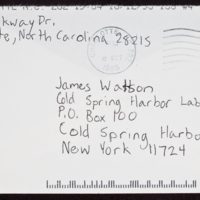 kway Dr.
te, North Carolina 28215
James Watson
Cold Spring Harbor Lab
P.O. Box 100
Cold Spring Harbo
New York 11724